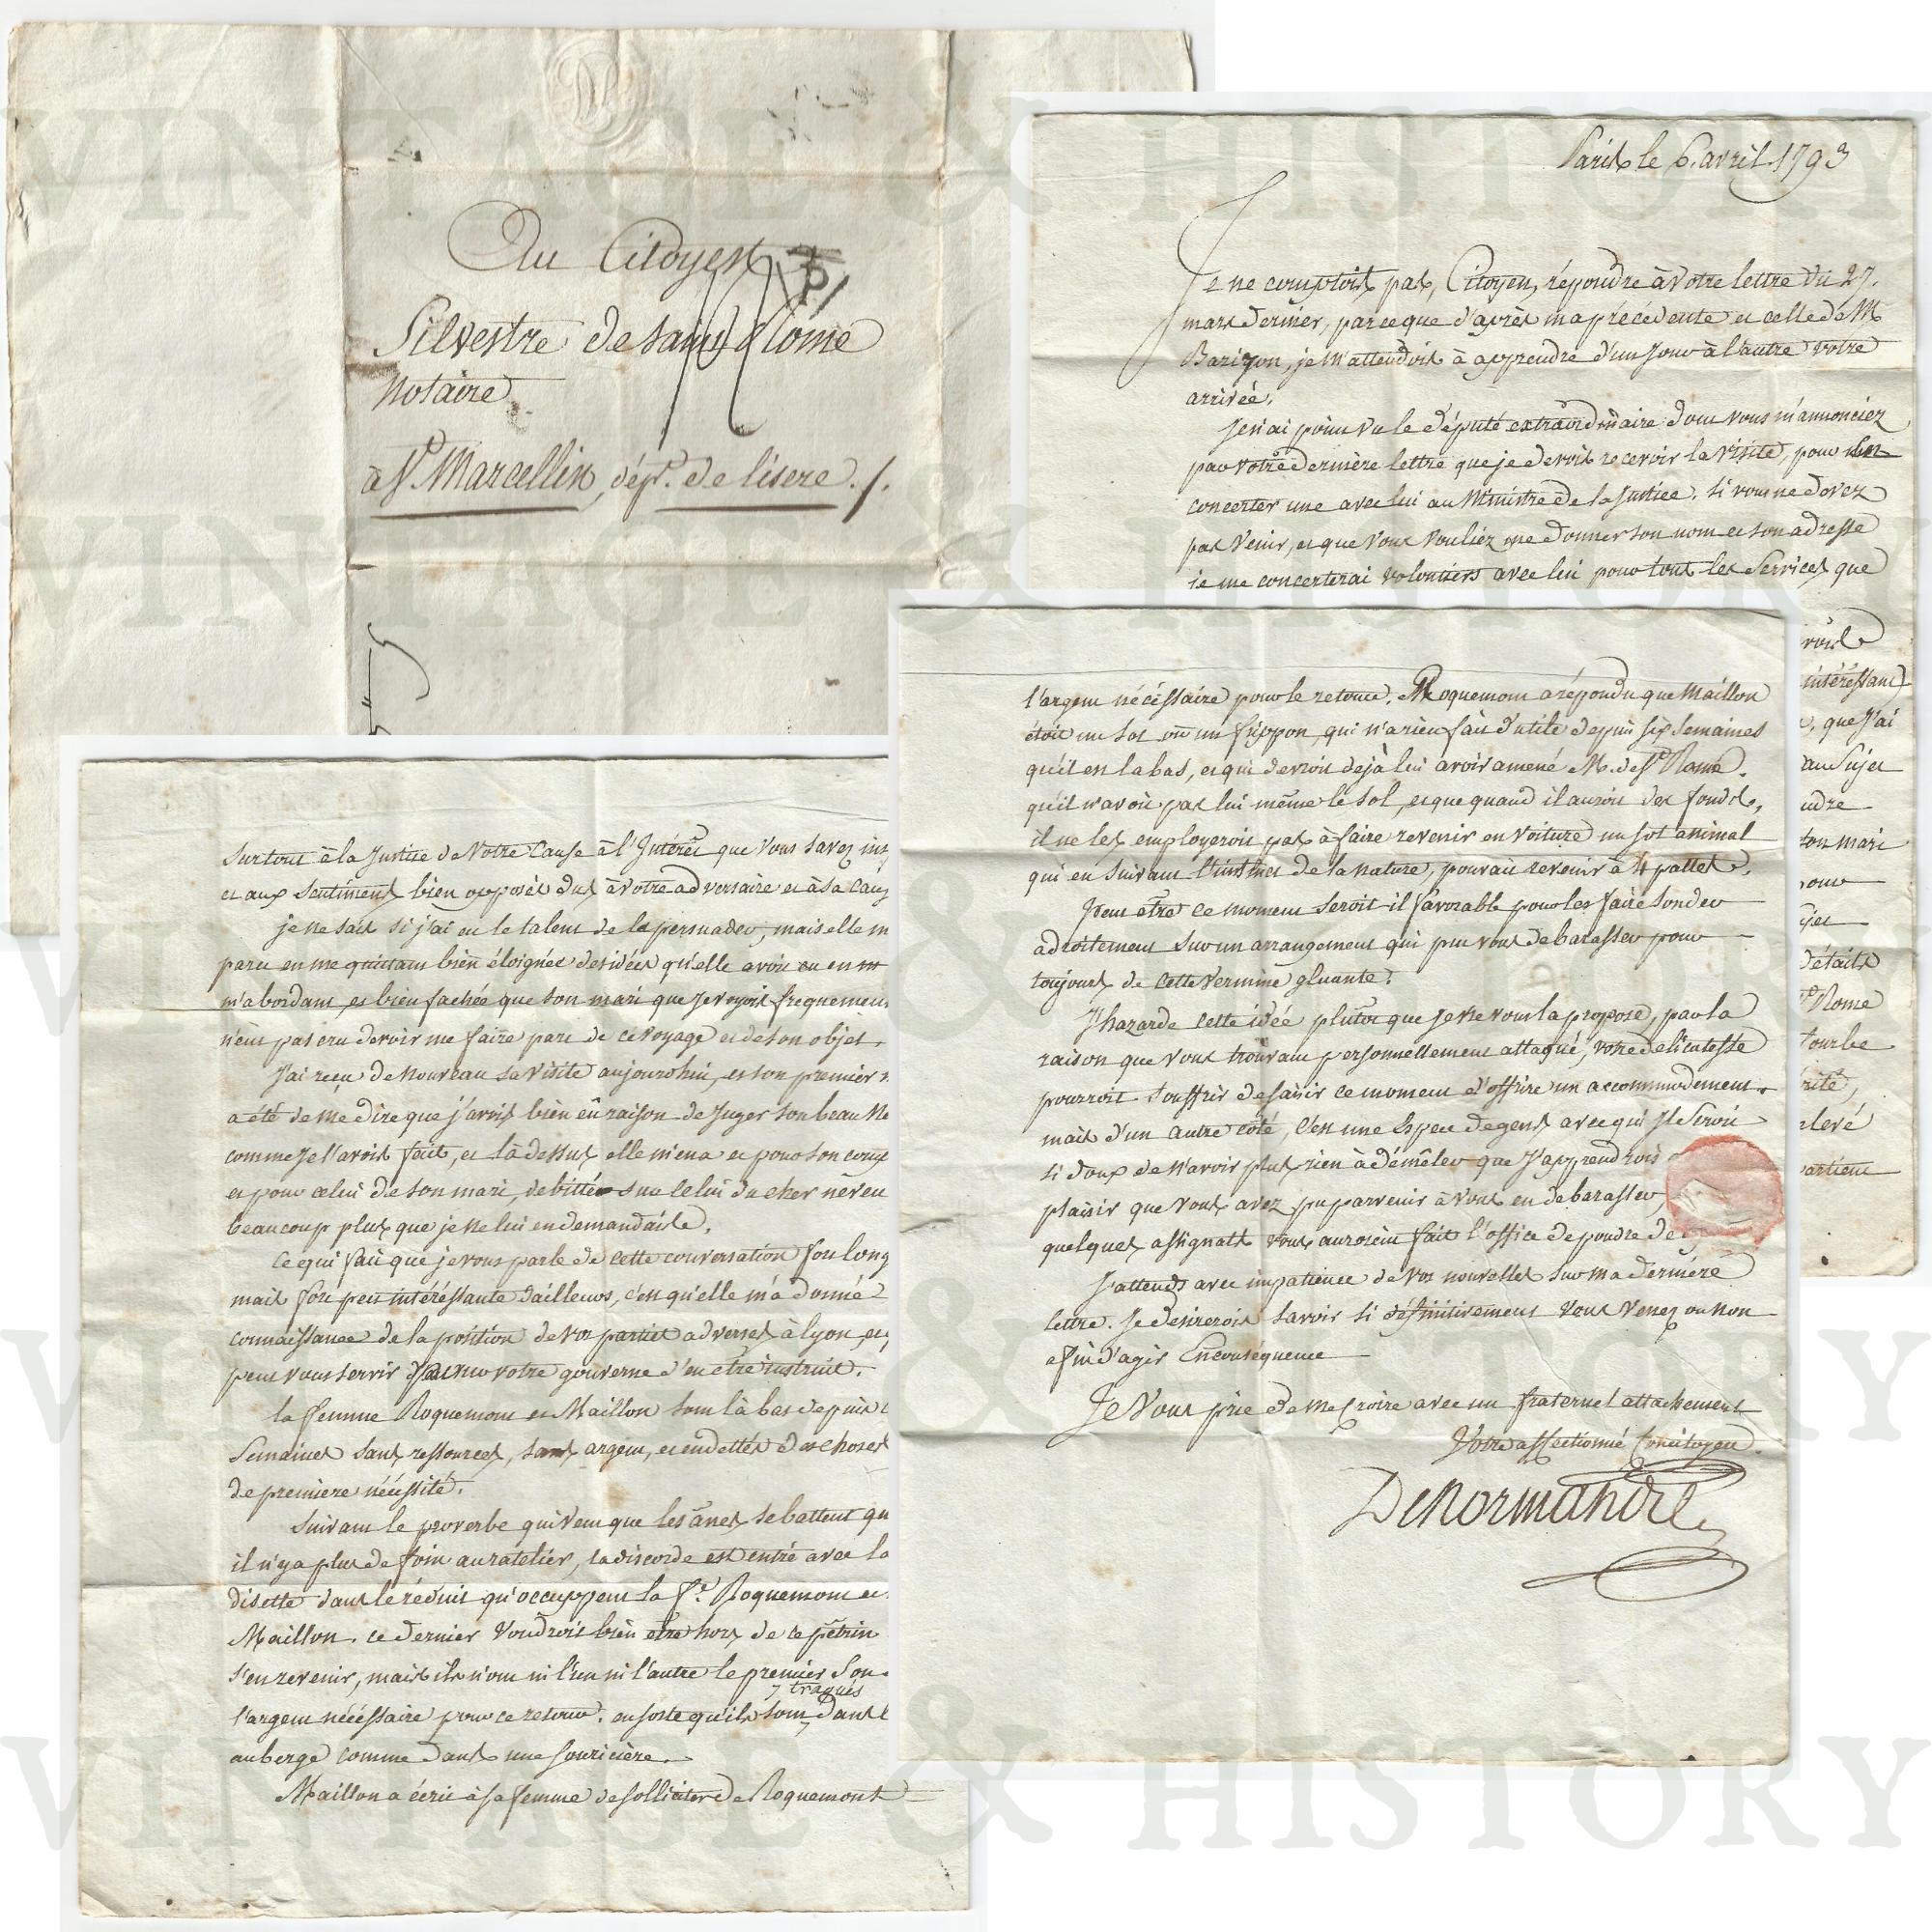 Au Citoyen
Silvestre de saint Rome
Notaire
à St. Marcellin, dépt. de lisere ./.
P
Paris le 6. avril 1793
Je ne comptois pas, Citoyen, répondre à votre lettre du 27.
mars dernier, parceque d'après ma précédente et celle de M
Barizon, je m'attendois à apprendre d'un jour à l'autre votre
arrivée.
Je n'ai point vu le député extraordinaire dont vous m'annonciez
par votre dernière lettre que je devois recevoir la visite, pour en
concerter une avec lui au Ministre de la Justice. si vous ne devez
pas venir, et que vous vouliez me donner son nom et son adresse
je me concerterai volontiers avec lui pour tous les services que
intéressant
, que j'ai
au sujet
ton mari
pour
détails
St Rome
tourbe
elevé
surtout à la Justice de votre cause à l'Intérêt que vous savez ins
et aux sentimens bien opposés dus à votre adversaire et à sa caus
je ne sais si j'ai eu le talent de la persuader, mais elle m
paru en me quittant bien éloignée des idées qu'elle avoit eu en
m'abordant, et bien fachée que son mari que je voyois frequemen
n'eut pas cru devoir me faire part de ce voyage et de son objet.
J'ai reçu de nouveau sa visite aujourdhui, et son premier
a été de me dire que j'avois bien eû raison de juger son beau Ne
comme je l'avois fait, et là dessus elle m'en a et pour son comp
et pour celui de son mari, debitté sur celui du cher néveu
beaucoup plus que je ne lui en demandais.
Ce qui fait que je vous parle de cette conversation fou long
mais fort peu intéressante dailleurs, c'en qu'elle m'a donné
connaissance de la position de vos parties adverses à lyon, et
peut vous servir pour votre gouverne d'en être instruit.
la femme Roquemont et Maillon sont là bas depuis
semaines sans ressources, sans argent, et endettés des choses
de premiere nécéssité.
Suivant le proverbe qui veut que les ânes se battent qu
il n'y a plus de foin au ratelier, la discorde est entré avec la
disette dans le réduit qu'occuppent la fe. Roquemont et
Maillon. ce dernier voudrois bien être hors de ce pétrin
s'en revenir, mais ils n'ont ni l'un ni l'autre le premier sou
l'argent nécéssaire pour ce retour. en sorte qu'ils sont traqués dans l
auberge comme dans une souricière.
Maillon a écrit à sa femme de solliciter de Roquemont
l'argent nécéssaire pour le retour. Roquemont a répondu que Maillon
étoit un sot ou un frippon, qui n'a rien fait d'utile depuis six semaines
qu'il est la bas, et qui devroit dejà lui avoir amené M. de St Rome.
qu'il n'avoit pas lui même le sol, et que quand il auroit des fonds,
il ne les employeroit pas à faire revenir en voiture un sot animal
qui en suivant l'instinct de la nature, pouvait revenir à 4 pattes.
Peut être ce moment seroit-il favorable pour les faire sonder
adroitement sur un arrangement qui put vous debarasser pour
toujours de cette vermine gluante.
J'hazarde cette idée plutôt que je ne vous la propose, par la
raison que vous trouvant personnellement attaqué, votre delicatesse
pourroit souffrir de saisir ce moment d'offrir un accommodement.
mais d'un autre côté, c'en une espece de gens avec qui il seroit
si doux de n'avoir plus rien à démêler que j'apprendrois
plaisir que vous avez pu parvenir à vous en debarasser,
quelques assignats vous auroient fait l'office de poudre de
J'attends avec impatience de vos nouvelles sur ma dernière
lettre. Je desirerois savoir si définitivement vous venez ou non
afin d'agir Enconséquence
Je Vous prie de me croire avec un fraternel attachement
Votre affectionné Concitoyen.
DeNormandie
VINTAGE & HISTORY
VINTAGE & HISTORY
VINTAGE & HISTORY
VINTAGE & HISTORY
VINTAGE & HISTORY